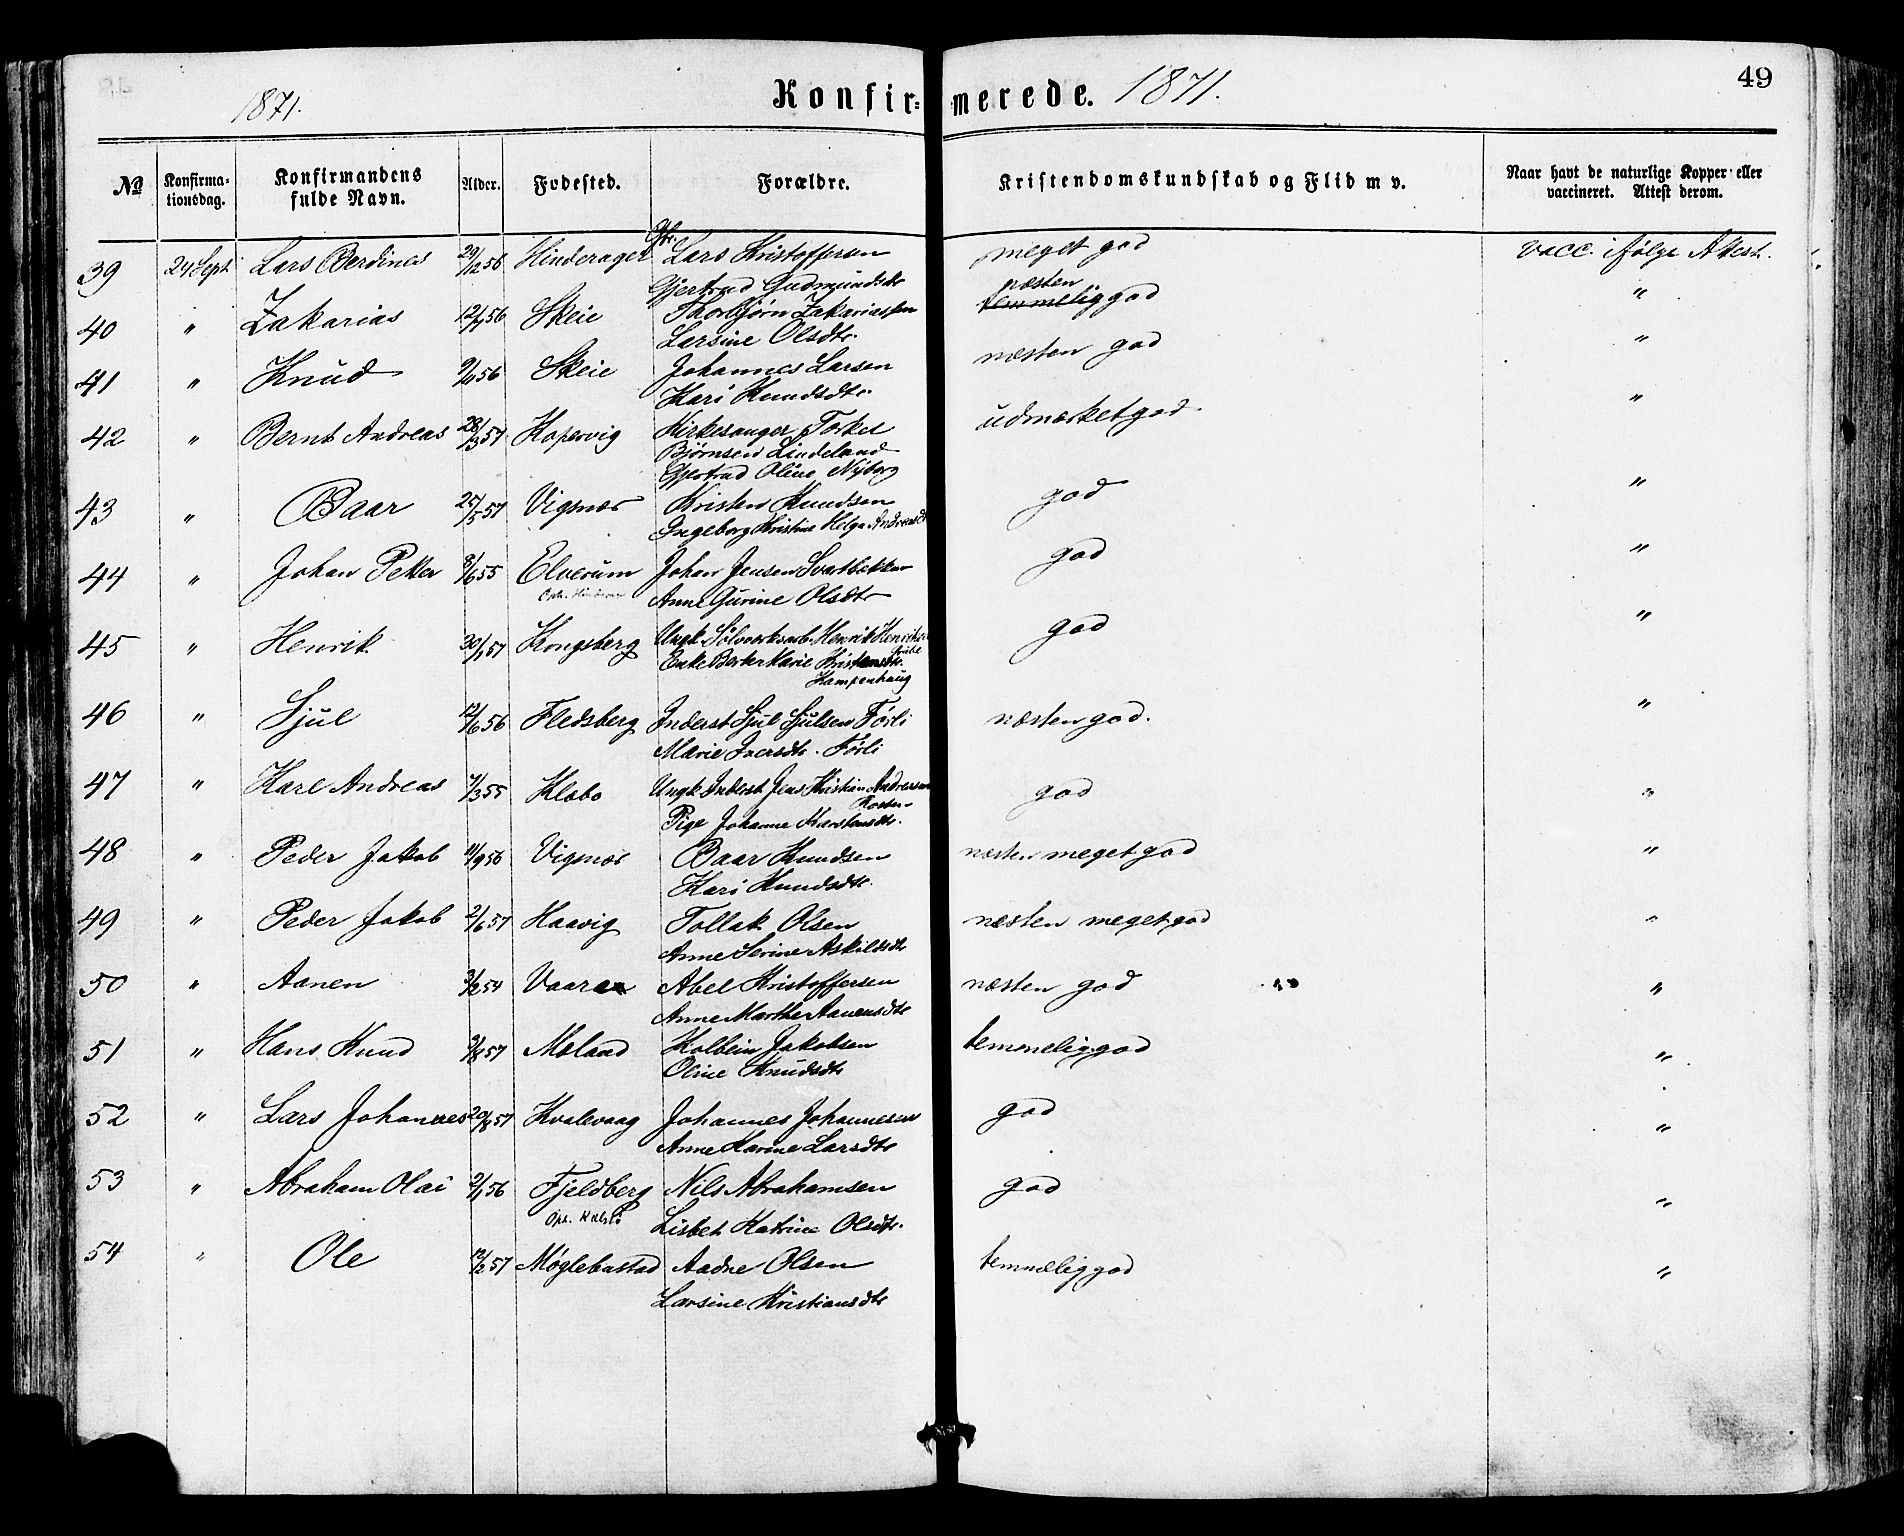 49
1871. Konfir= merede. 1871.
No Konfirma= tionsdag. Konfirmandens fulde Navn. Alder. Fødested. Forældre. Kristendomskundskab og Flid m v. Naar havt de naturlige Kopper eller vaccineret. Attest derom.
39 24 Sept Lars Berdines 29/12 56 Hinderager Lars Kristoffersen meget god vacc. ifølge Attest.
Gjertrud Gudmundsdtr
40 " Zakarias 12/7 56 Skeie Thorbjørn Zakariassen næsten temmelig god "
Larsine Olsdtr.
41 " Knud 9/11 56 Skeie Johannes Larsen næsten god "
Kari Knudsdtr.
42 " Bernt Andreas 28/3 57 Kopervig Kirkesanger Torkel udmærket god. "
Bjørnsen Lindeland
Gjertrud Oline Nyborg
43 " Baar 25/5 57 Vigsnæs Kristen Knudsen god "
Ingeborg Kristine Helga Andreasdt
44 " Johan Petter 3/6 55 Elverum Johan Jensen Svartbekken god "
Anne Gurine Olsdtr
45 " Henrik 30/1 57 Kongsberg Ungk. Sølvverksarb. Henrik Henriksen god "
Enke Berte Marie Kristensdtr.
Hampenhaug
46 " Sjul 12/6 56 Fledsberg Inderst Sjul Sjulsen Førli næsten god. "
Marie Iversdtr. Førli
47 " Karl Andreas 4/3 55 Klæbo Ungk. Inderst Jens Kristian Andersen god "
Rosten
Pige Johanne Karstensdtr.
48 " Peder Jakob 11/9 56 Vigsnæs Baar Knudsen næsten meget god "
Kari Knudsdtr.
49 " Peder Jakob 2/6 57 Haavig Tollak Olsen næsten meget god "
Anne Serine Askildsdtr
50 " Aanen 3/12 54 Vaaraa Abel Kristoffersen næsten god "
Anne Marthe Aanensdtr
51 " Hans Knud 9/8 57 Mæland Kolbein Jakobsen temmelig god "
Oline Knudsdtr
52 " Lars Johannes 20/8 57 Kvalevaag Johannes Johannesen god "
Anne Karine Larsdtr
53 " Abraham Olai 2/1 56 Fjeldberg Nils Abrahamsen god "
Lisbet Katrine Olsdtr.
54 " Ole 12/2 57 Møglebustad Aadne Olsen temmelig god "
Larsine Kristiansdtr